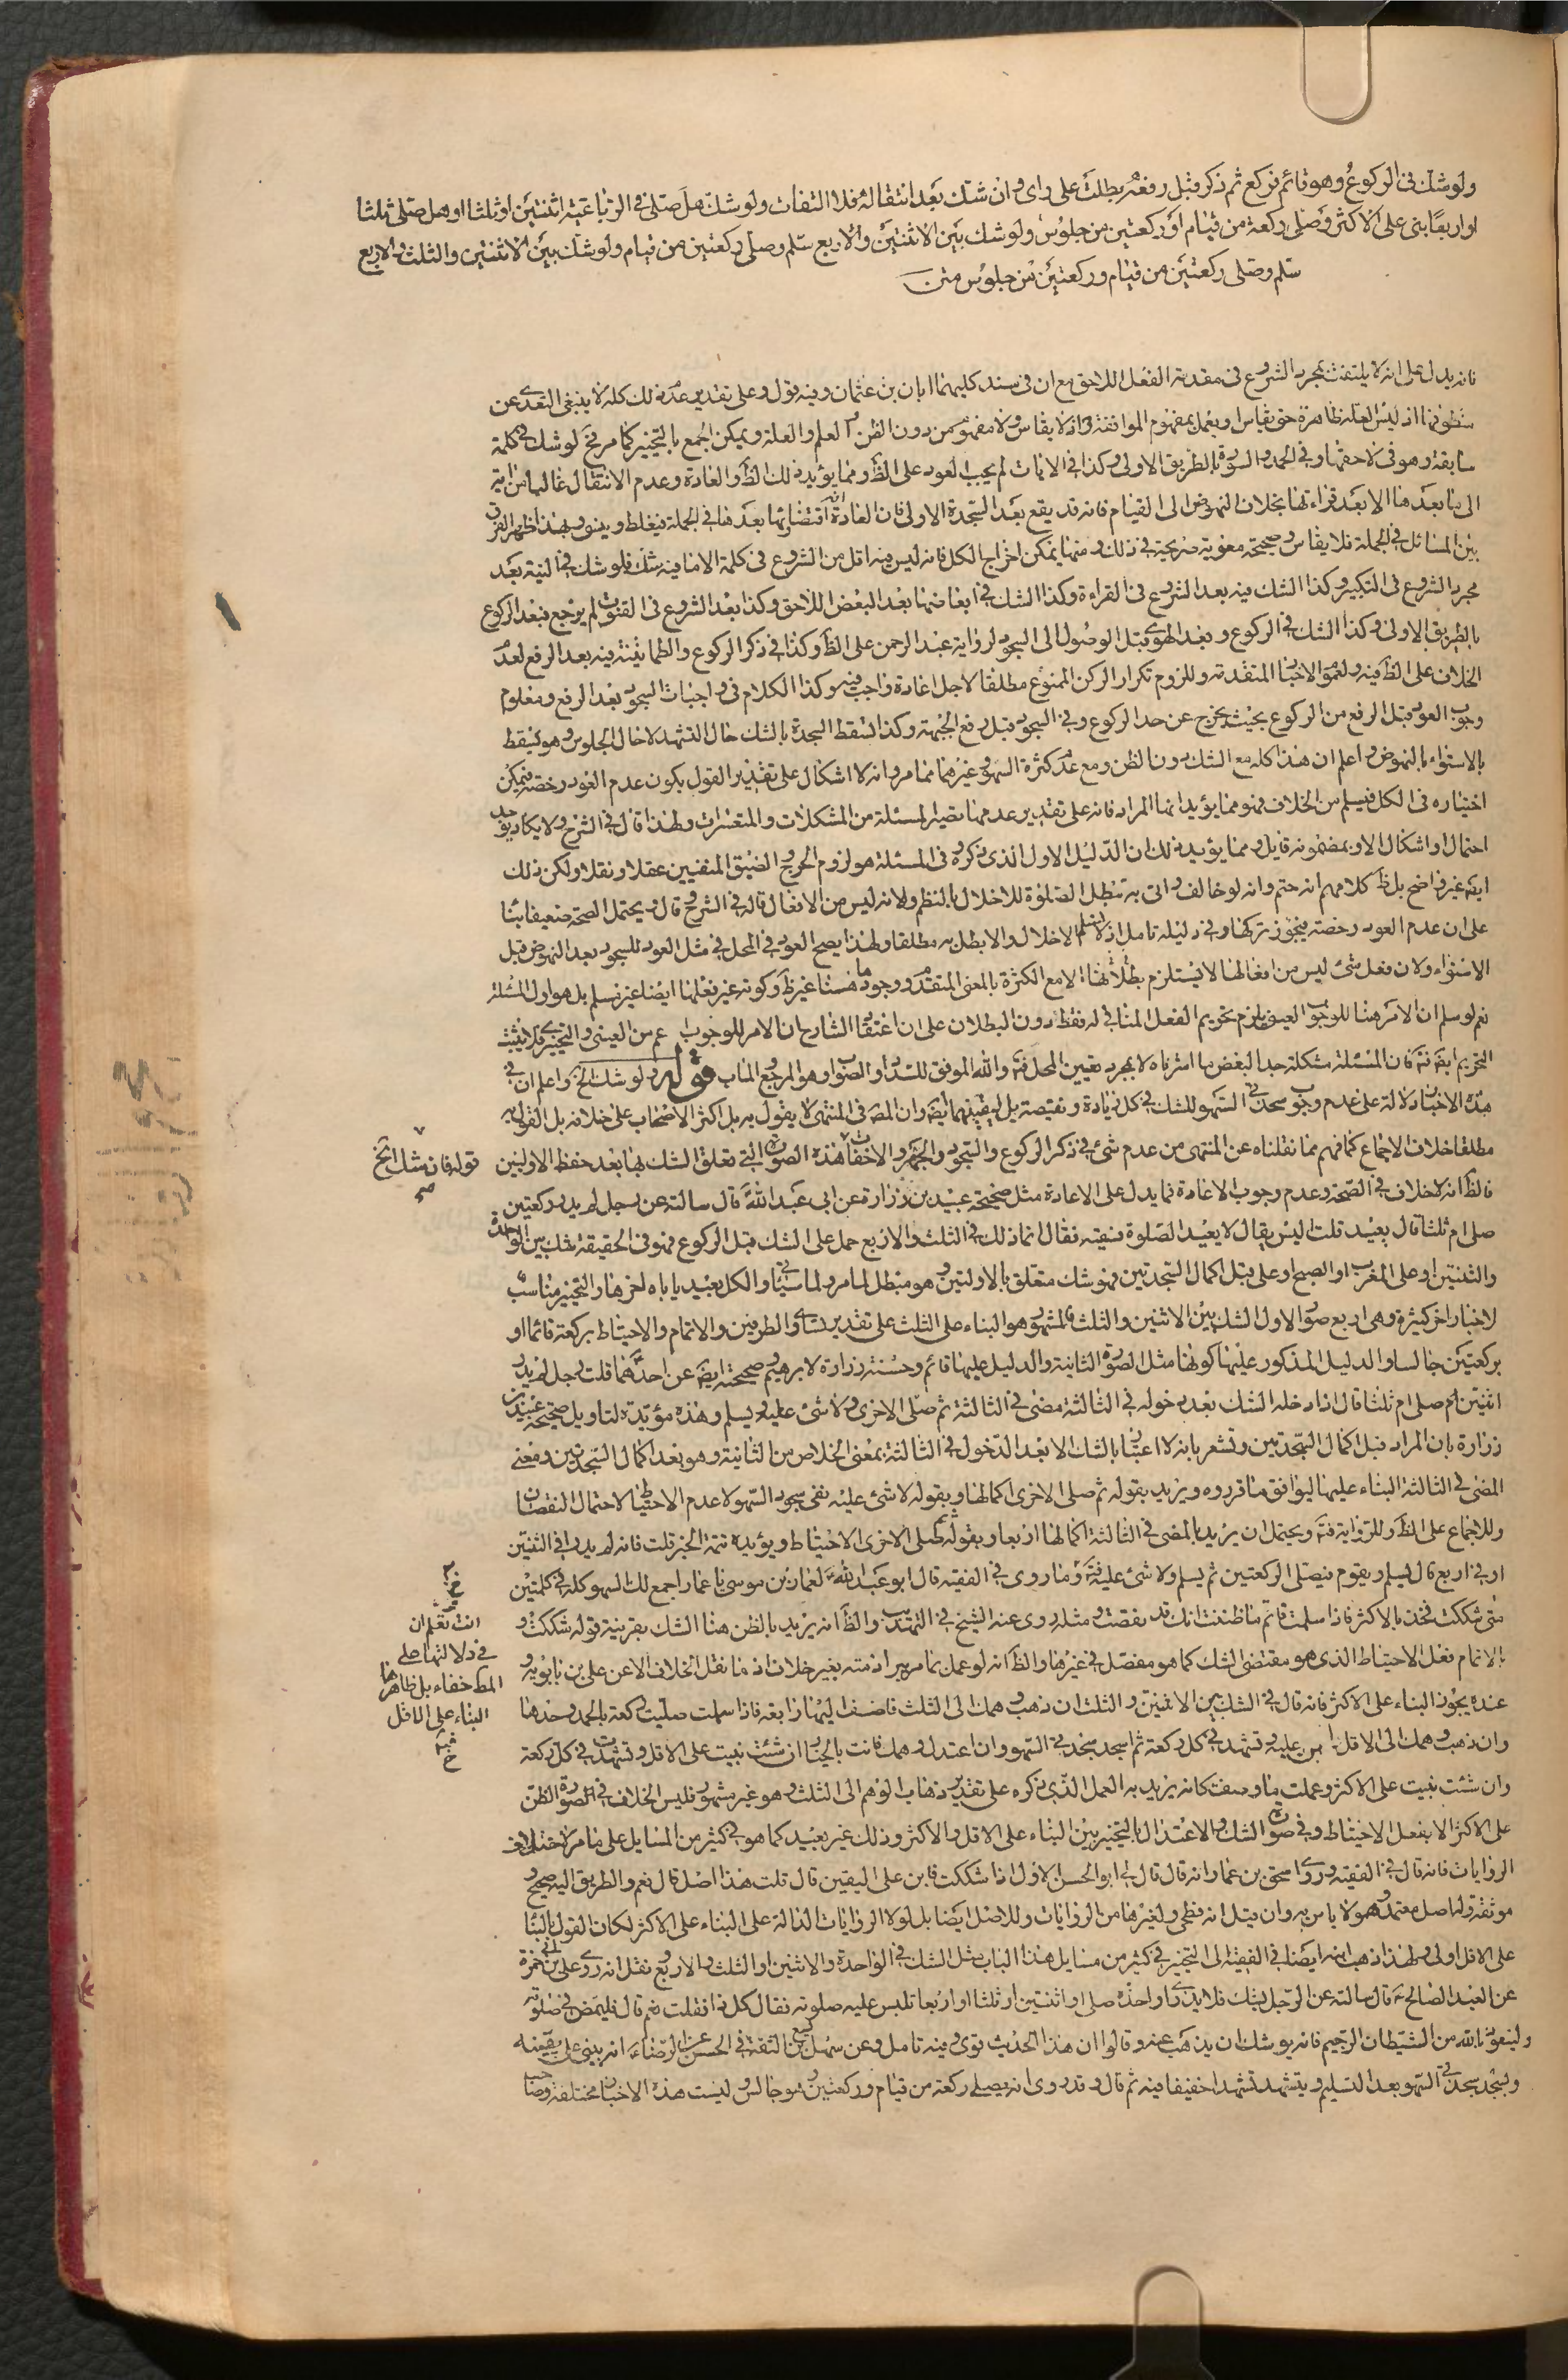 ولو شك فى الركوع وهو قائم فركع ثم ذكر قبل رفعه بطلت على راى وان شك بعد انتقاله فلا التفات ولو شك هل صلى فى الرباعية اثنتين او ثلثا او هل صلى ثلثا
او اربعا بنى على الاكثر وصلى ركعة من قيام او ركعتين من جلوس ولو شك بين الاثنتين والاربع سلم وصلى ركعتين من قيام ولو شك بين الاثنتين والثلث والاربع
سلم وصلى ركعتين من قيام وركعتين من جلوس متن
فانه يدل على انه لا يلتفت بمجرد الشروع فى مقدمة الفعل اللاحق مع ان فى سند كليهما ابان بن عثمان وفيه قول وعلى تقدير عدم ذلك كله لا ينبغى التعدى عن
منطوقها اذ ليس العلة ظاهرة حتى يقاس ويعمل بمفهوم الموافقة واذ لا يقاس ولا مفهوم من دون الظن العلم والعلة ويمكن الجمع بالتخيير كما مر فح لو شك فى كلمة
سابقة وهو فى لاحقها وفى الحمد والسورة بالطريق الاولى وكذا فى الايات لم يجب العود على الظ ومما يؤيد ذلك الظ والعادة وعدم الانتقال غالبا من اية
الى ما بعدها الا بعد قراءتها بخلاف النهوض الى القيام فانه قد يقع بعد السجدة الاولى فان العادة اقتضاؤها بعدها فى الجملة فيغلط وينسى وبهذا ظهر الفرق
بين المسائل فى الجملة فلا يقاس وصحيحة معوية صريحة فى ذلك ومنها يمكن اخراج الكل فانه ليس فيه اقل من الشروع فى كلمة الا ما فيه شك فلو شك فى النية بعد
مجرد الشروع فى التكبير وكذا الشك فيه بعد الشروع فى القراءة وكذا الشك فى ابعاضها بعد البعض اللاحق وكذا بعد الشروع فى القنوت لم يرجع فبعد الركوع
بالطريق الاولى وكذا الشك فى الركوع وبعد الهوى قبل الوصول الى السجود لرواية عبد الرحمن على الظ وكذا فى ذكر الركوع والطمانينة فيه بعد الرفع لعدم
الخلاف على الظ فيه ولعموم الاخبار المتقدمة وللزوم تكرار الركن الممنوع مطلقا لاجل اعادة واجب فيه وكذا الكلام فى واجبات السجود بعد الرفع ومعلوم
وجوب العود قبل الرفع من الركوع بحيث يخرج عن حد الركوع وفى السجود قبل رفع الجبهة وكذا تسقط السجدة بالشك حال التشهد لا حال الجلوس وهو يسقط
بالاستواء بالنهوض واعلم ان هذا كله مع الشك دون الظن ومع عدم كثرة السهو وغيرهما مما مر وانه لا اشكال على تقدير القول بكون عدم العود رخصة فيمكن
اختياره فى الكل فيسلم من الخلاف فهو مما يؤيد انها المراد فانه على تقدير عدمها تصير المسئلة من المشكلات والمتعسرات ولهذا قال فى الشرح ولا يكاد يوجد
احتمال واشكال الا وبمضمونه قايل ومما يؤيد ذلك ان الدليل الاول الذى ذكره فى المسئلة هو لزوم الحرج والضيق المنفيين عقلا ونقلا ولكن ذلك
ايضه غير واضح بل ظ كلامهم انه حتم وانه لو خالف واتى به تبطل الصلوة للاخلال بالنظم ولانه ليس من الافعال قاله فى الشرح قال ويحتمل الصحة ضعيفا بناء
على ان عدم العود رخصة فيجوز تركها وفى دليله تامل اذ لا نسلم الاخلال والا بطل به مطلقا ولهذا يصح العود فى المحل فى مثل العود للسجود بعد النهوض قبل
الاستواء ولان فعل شئ ليس من افعالها لا يستلزم بطلانها الا مع الكثرة بالمعنى المتقدم ووجودها هنا غير ظ وكونه غير فعلها ايضا غير مسلم بل هو اول المسئلة
نعم لو سلم ان الامر هنا للوجوب العينى يلزم تحريم الفعل المنافى له فقط دون البطلان على ان اعتقاد الشارح ان الامر للوجوب اعم من العينى والتخييرى فلا يثبت
التحريم ايضه فتامل فان المسئلة مشكلة جدا لبعض ما اشرناه لا بمجرد تعيين المحل فتامل والله الموفق للسداد والصواب وهو المرجع والماب قوله ولو شك الخ واعلم ان فى
هذه الاخبار دلالة على عدم وجوب سجدتى السهو للشك فى كل زيادة ونقيصة بل ليقينهما ايضه وان المصه فى المنتهى لا يقول به بل اكثر الاصحاب على خلافه بل القول به
مطلقا خلاف الاجماع كما فهم مما نقلناه عن المنتهى من عدم شئ فى ذكر الركوع والسجود والجهر والاخفات هذه الصورة التى تعلق الشك بها بعد حفظ الاوليين
فالظ انه لا خلاف فى الصحة وعدم وجوب الاعادة فما يدل على الاعادة مثل صحيحة عبيد بن زرارة عن ابى عبد الله قال سالته عن رجل لم يدر ركعتين
صلى ام ثلثا قال يعيد قلت اليس يقال لا يعيد الصلوة فقيه فقال انما ذلك فى الثلث والاربع حمل على الشك قبل الركوع فهو فى الحقيقة شك بين الواحدة
والثنتين او على المغرب او الصبح او على قبل اكمال السجدتين فهو شك متعلق بالاولتين وهو مبطل لما مر ولما سياتى والكل بعيد ياباه اخرها والتخيير مناسب
لاخبار اخر كثيرة وهى اربع صور الاول الشك بين الاثنين والثلث والمشهور هو البناء على الثلث على تقدير تساوى الطرفين والاتمام والاحتياط بركعة قائما او
بركعتين جالسا والدليل المذكور عليها كونها مثل الصورة الثانية والدليل عليها قائم وحسنة زرارة لابرهيم وصحيحته ايضه عن احدهما قلت رجل لم يدر
اثنتين ام صلى ام ثلثا قال اذا دخله الشك بعد دخوله فى الثالثة مضى فى الثالثة ثم صلى الاخرى ولا شئ عليه ويسلم وهذه مؤيدة لتاويل صحيحة عبيد بن
زرارة بان المراد قبل اكمال السجدتين وتشعر بانه لا اعتبار بالشك الا بعد الدخول فى الثالثة بمعنى الخلاص من الثانية وهو بعد اكمال السجدتين ومعنى
المضى فى الثالثة البناء عليها ليوافق ما قرروه ويزيد بقوله ثم صلى الاخرى اكمالها وبقوله لا شئ عليه نفى سجود السهو لا عدم الاحتياط لاحتمال النقصان
وللاجماع على الظ وللرواية فتامل ويحتمل ان يزيد بالمضى فى الثالثة اكمالها اربعا وبقوله ثم صلى الاخرى الاحتياط ويؤيده تتمة الخبر قلت فانه لم يدر فى اثنتين
او فى اربع قال يسلم ويقوم فيصلى الركعتين ثم يسلم ولا شئ عليه فتامل وما روى فى الفقيه قال ابو عبد الله لعمار بن موسى يا عمار اجمع لك السهو كله فى كلمتين
متى شككت فخذ بالاكثر فاذا سلمت فاتم ما ظننت انك قد نقصت ومثله روى عنه الشيخ فى التهذيب والظ انه يريد بالظن هنا الشك بقرينة قوله شككت و
بالاتمام فعل الاحتياط الذى هو مقتضى الشك كما هو مفصل فى غيرها والظ انه لو عمل بما مر يبرا ذمته بغير خلاف اذ ما نقل الخلاف الا عن على بن بابويه و
عنده يجوز البناء على الاكثر فانه قال فى الشك بين الاثنين والثلث ان ذهب وهمك الى الثلث فاضف اليها رابعة فاذا سلمت صليت ركعة بالحمد وحدها
وان ذهب وهمك الى الاقل ابن عليه وتشهد فى كل ركعة ثم اسجد سجدتى السهو وان اعتدل وهمك فانت بالخيار ان شئت بنيت على الاقل وتشهدت فى كل ركعة
وان شئت بنيت على الاكثر وعملت ما وصفت كانه يريد به العمل الذى ذكره على تقدير ذهاب الوهم الى الثلث وهو غير مشهور فليس الخلاف فى الصورة الظن
على الاكثر الا بفعل الاحتياط وفى صورة الشك والاعتدال بالتخيير بين البناء على الاقل والاكثر وذلك غير بعيد كما هو فى كثير من المسايل على ما مر لاختلاف
الروايات فانه قال فى الفقيه وروى اسحق بن عمار انه قال قال لى ابو الحسن الاول اذا شككت فابن على اليقين قال قلت هذا اصل قال نعم والطريق اليه صحيح و
موثقة ولها اصل معتمد وهو لا باس به وان قيل انه فطحى ولغيرها من الروايات وللاصل ايضا بل لولا الروايات الدالة على البناء على الاكثر لكان القول بالبناء
على الاقل اولى ولهذا ذهب ابنه ايضا فى الفقيه الى التخيير فى كثير من مسايل هذا الباب مثل الشك فى الواحدة والاثنين او الثلث والاربع نقل انه روى على بن ابى حمزة
عن العبد الصالح قال سالته عن الرجل يشك فلا يدرى واحدة صلى او اثنتين او ثلثا او اربعا تلبس عليه صلوته فقال كل ذا فقلت نعم قال فليمض فى صلوته
وليتعوذ بالله من الشيطان الرجيم فانه يوشك ان يذهب عنه وقالوا ان هذا الحديث قوى وفيه تامل وعن سهل بن اليسع الثقة فى الحسن عن الرضا انه يبنى على يقينه
ويسجد سجدتى السهو بعد التسليم ويتشهد تشهدا خفيفا فيه ثم قال وقد روى انه يصلى ركعة من قيام وركعتين وهو جالس وليست هذه الاخبار مختلفة وصاحب
قوله فان شك الخ
صح
انت تعلم ان
فى دلالتها على
المط خفاء بل ظاهرها
البناء على الاقل